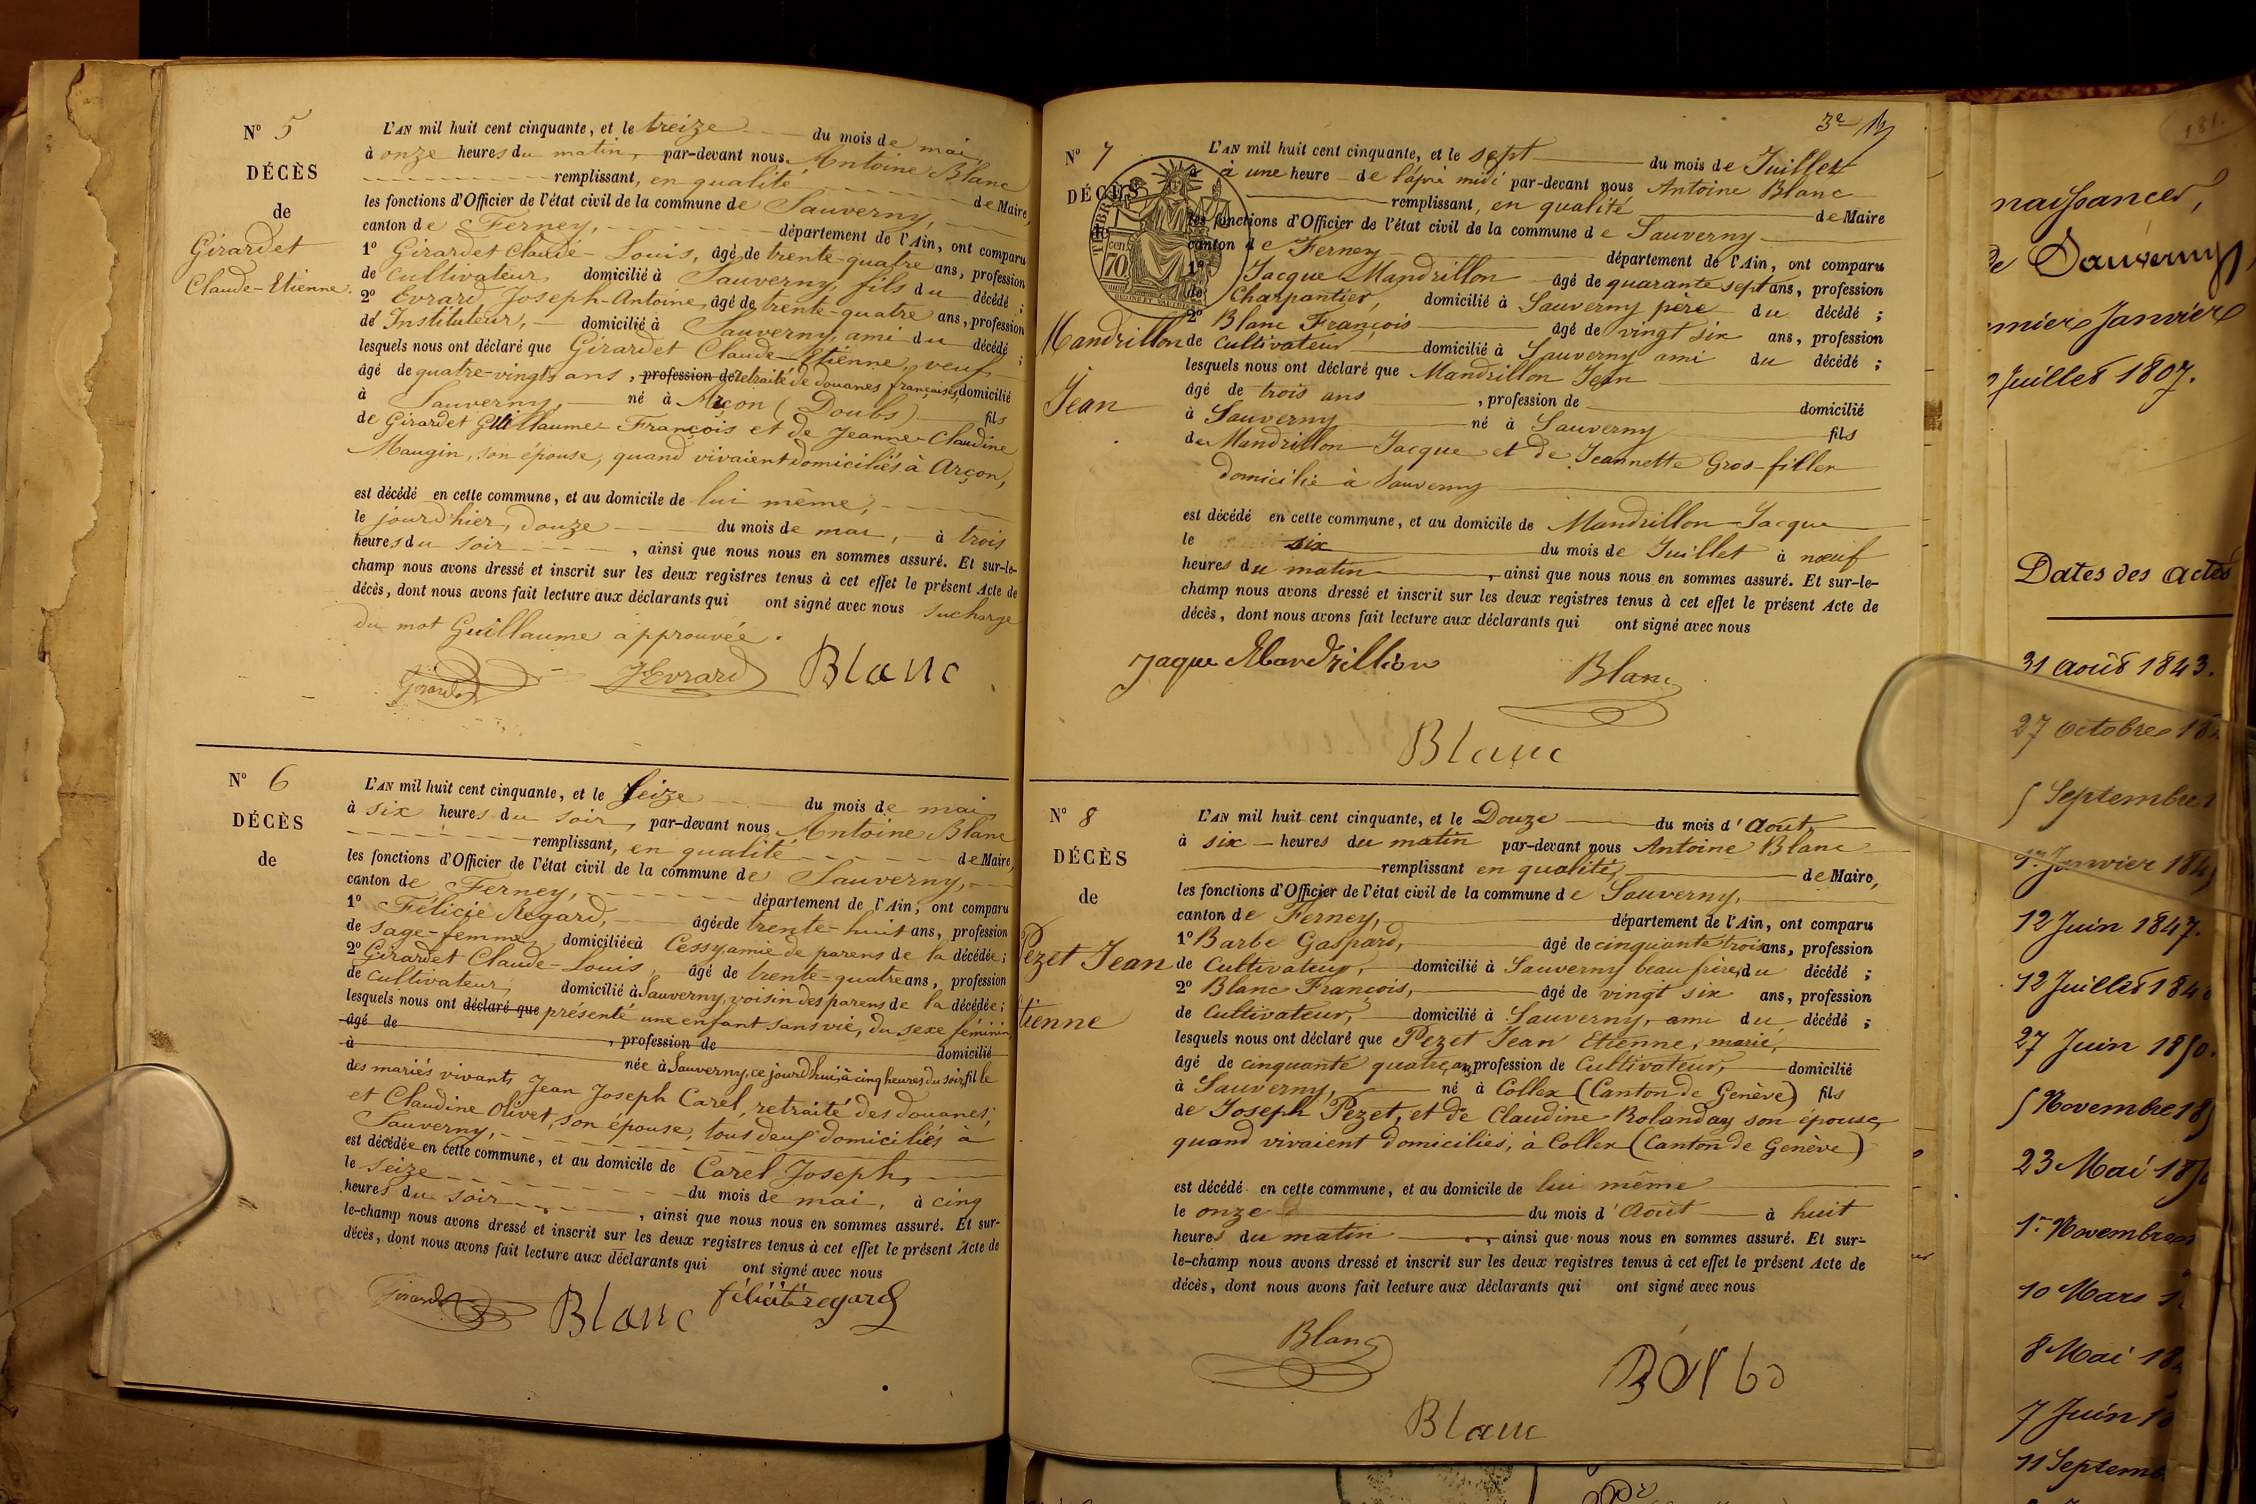 N° 5
DÉCÈS
de
Girardet
Claude-Etienne.
L'AN mil huit cent cinquante, et le treize du mois de mai,
à onze heures du matin, par-devant nous Antoine Blanc
remplissant, en qualité de Maire,
les fonctions d'Officier de l'état civil de la commune de Sauverny,
canton de Ferney, département de l'Ain, ont comparu
1° Girardet Claude-Louis, âgé de trente-quatre ans, profession
de cultivateur, domicilié à Sauverny, fils du décédé ;
2° Evrard Joseph-Antoine, âgé de trente-quatre ans, profession
de Instituteur, domicilié à Sauverny, ami du décédé ;
lesquels nous ont déclaré que Girardet Claude-Etienne, veuf
âgé de quatre-vingts ans, profession de retraité de douanes françaises, domicilié
à Sauverny, né à Arçon (Doubs) fils
de Girardet Guillaume-François et de Jeanne-Claudine
Maugin, son épouse, quand vivaient domiciliés à Arçon,
est décédé en cette commune, et au domicile de lui même,
le jourd'hier, douze du mois de mai, à trois
heures du soir, ainsi que nous nous en sommes assuré. Et sur-le-
champ nous avons dressé et inscrit sur les deux registres tenus à cet effet le présent Acte de
décès, dont nous avons fait lecture aux déclarants qui ont signé avec nous sucharge
du mot Guillaume approuvée.
Girardet JEvrard Blanc
N° 6
DÉCÈS
de
L'AN mil huit cent cinquante, et le seize du mois de mai,
à six heures du soir, par-devant nous Antoine Blanc
remplissant, en qualité de Maire,
les fonctions d'Officier de l'état civil de la commune de Sauverny,
canton de Ferney, département de l'Ain, ont comparu
1° Félicie Regard, âgée de trente-huit ans, profession
de sage-femme, domiciliée à Cessy, amie de parens de la décédée ;
2° Girardet Claude-Louis, âgé de trente-quatre ans, profession
de cultivateur, domicilié à Sauverny, voisin des parens de la décédée ;
lesquels nous ont déclaré que présenté une enfant sans vie, du sexe féminin,
âgé de
à , profession de domicilié
née à Sauverny, ce jourd'hui, à cinq heures du soir, fille
des mariés vivants Jean Joseph Carel, retraité des douanes,
et Claudine Olivet, son épouse, tous deux domiciliés à
Sauverny,
est décédée en cette commune, et au domicile de Carel Joseph,
le seize du mois de mai, à cinq
heures du soir, ainsi que nous nous en sommes assuré. Et sur-
le-champ nous avons dressé et inscrit sur les deux registres tenus à cet effet le présent Acte de
décès, dont nous avons fait lecture aux déclarants qui ont signé avec nous
Girardet Blanc félicité regard
3e
N° 7
DÉCÈS
Mandrillon
Jean
TIMBRE
cen
70
L'AN mil huit cent cinquante, et le sept du mois de Juillet
à une heure de l'aprè midi par-devant nous Antoine Blanc
remplissant, en qualité de Maire
les fonctions d'Officier de l'état civil de la commune de Sauverny
canton de Ferney département de l'Ain, ont comparu
1° Jacque Mandrillon âgé de quarante sept ans, profession
de Charpantier, domicilié à Sauverny père du décédé ;
2° Blanc François âgé de vingt six ans, profession
de cultivateur domicilié à Sauverny ami du décédé ;
lesquels nous ont déclaré que Mandrillon Jean
âgé de trois ans , profession de domicilié
à Sauverny né à Sauverny fils
de Mandrillon Jacque et de Jeannette Gros-filler
domicilié à Sauverny
est décédé en cette commune, et au domicile de Mandrillon Jacque
le six du mois de Juillet à nœuf
heures du matin, ainsi que nous nous en sommes assuré. Et sur-le-
champ nous avons dressé et inscrit sur les deux registres tenus à cet effet le présent Acte de
décès, dont nous avons fait lecture aux déclarants qui ont signé avec nous
Jaque Mandrillion Blanc
Blanc
N° 8
DÉCÈS
de
Pezet Jean
Etienne
L'AN mil huit cent cinquante, et le Douze du mois d'Août,
à six heures du matin par-devant nous Antoine Blanc
remplissant en qualité, de Maire,
les fonctions d'Officier de l'état civil de la commune de Sauverny,
canton de Ferney, département de l'Ain, ont comparu
1° Barbe Gaspard, âgé de cinquante trois ans, profession
de Cultivateur, domicilié à Sauverny beau frère, du décédé ;
2° Blanc François, âgé de vingt six ans, profession
de Cultivateur, domicilié à Sauverny, ami du décédé ;
lesquels nous ont déclaré que Pezet Jean Etienne, marié,
âgé de cinquante quatre ans, profession de Cultivateur, domicilié
à Sauverny, né à Collex (Canton de Genève) fils
de Joseph Pezet, et de Claudine Rolanday son épouse,
quand vivaient domiciliés, à Collex (Canton de Genève)
est décédé en cette commune, et au domicile de lui même
le onze du mois d'Août à huit
heures du matin, ainsi que nous nous en sommes assuré. Et sur-
le-champ nous avons dressé et inscrit sur les deux registres tenus à cet effet le présent Acte de
décès, dont nous avons fait lecture aux déclarants qui ont signé avec nous
Blanc Barbe
Blanc
181.
naissances,
de Sauverny,
Janvier
Juillet 1807.
Dates des actes
31 août 1843.
27 octobre
5 Septembre
1er Janvier
12 Juin 1847.
12 Juillet
27 Juin 1850.
5 Novembre
23 Mai
1er Novembre
10 Mars
8 Mai
7 Juin
11 Septemb